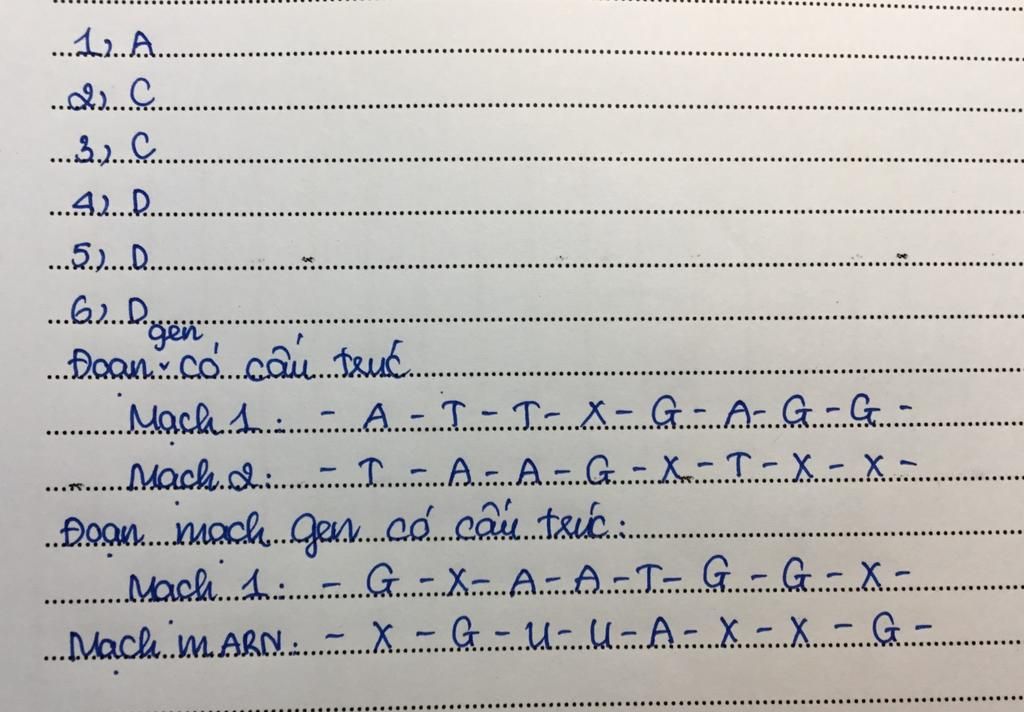 1, A
2, C
3, C
4, D
5, D
6, D
gen
Đoạn ˇ có cấu trúc
Mạch 1: - A - T - T - X - G - A - G - G -
Mạch 2: - T - A - A - G - X - T - X - X -
Đoạn mạch gen có cấu trúc:
Mạch 1: - G - X - A - A - T - G - G - X -
Mạch mARN: - X - G - U - U - A - X - X - G -